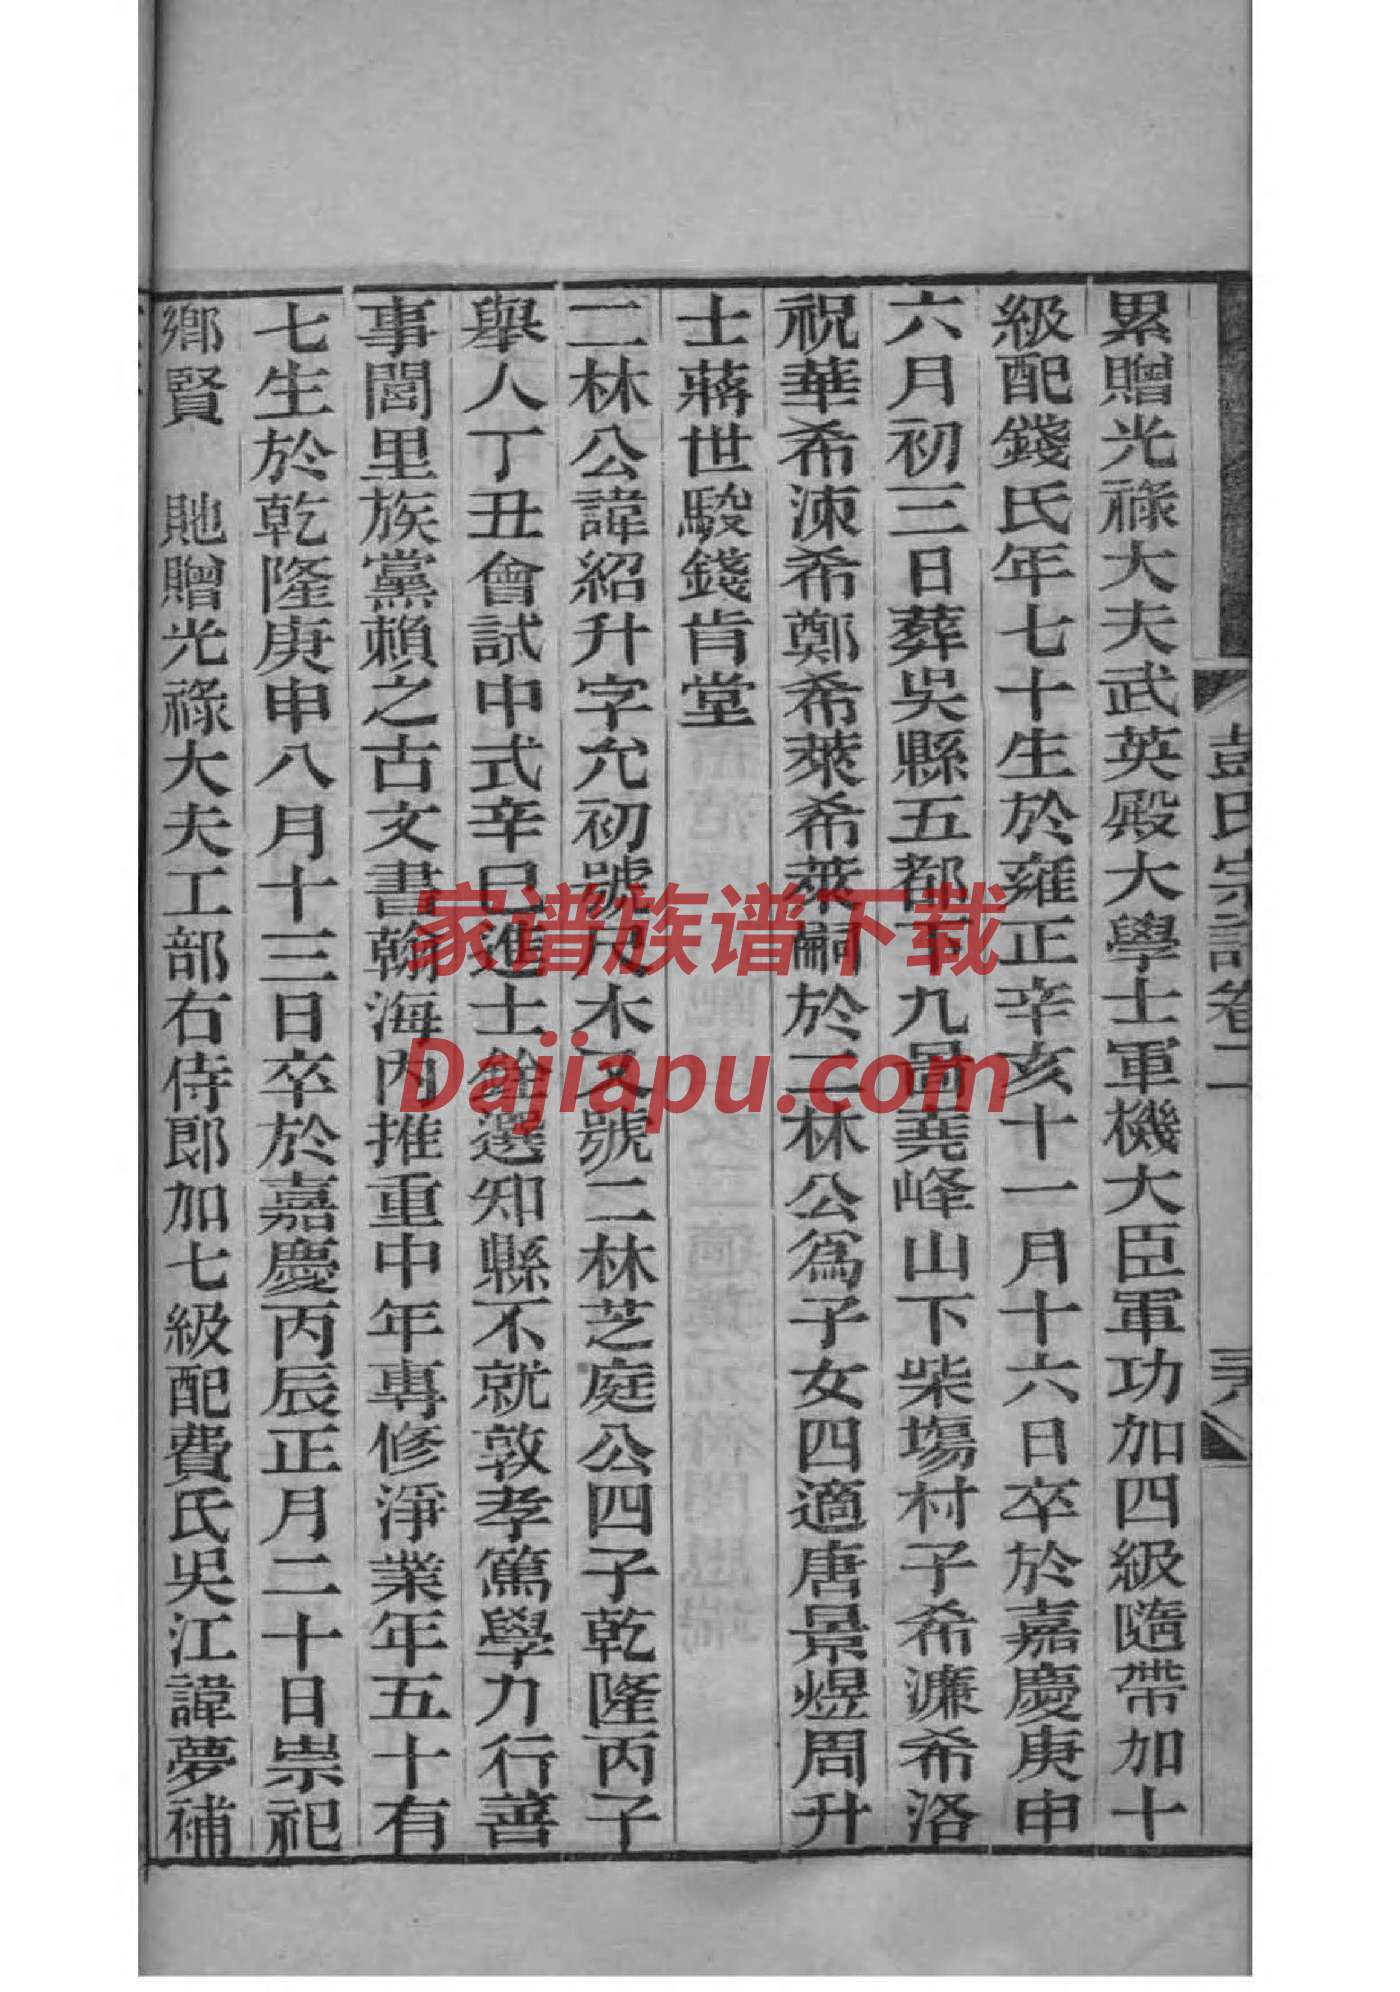 彭氏宗譜卷二
累贈光祿大夫武英殿大學士軍機大臣軍功加四級隨帶加十
級配錢氏年七十生於雍正辛亥十一月十六日卒於嘉慶庚申
六月初三日葬吳縣五都下九圖堯峰山下柴塲村子希濂希洛
祝華希涑希鄭希萊希萊嗣於二林公爲子女四適唐景煜周升
士蔣世駿錢肯堂
二林公諱紹升字允初號尺木又號二林芝庭公四子乾隆丙子
舉人丁丑會試中式辛巳進士銓選知縣不就敦孝篤學力行善
事閭里族黨賴之古文書翰海內推重中年專修淨業年五十有
七生於乾隆庚申八月十三日卒於嘉慶丙辰正月二十日崇祀
鄉賢 貤贈光祿大夫工部右侍郎加七級配費氏吳江諱夢補
家谱族谱下载
Dajiapu.com